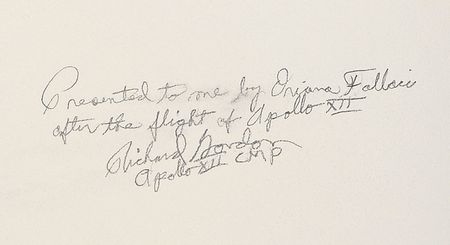 Presented to me by Oriana Fallaci
after the flight of Apollo XII
Richard Gordon
Apollo XII CMP